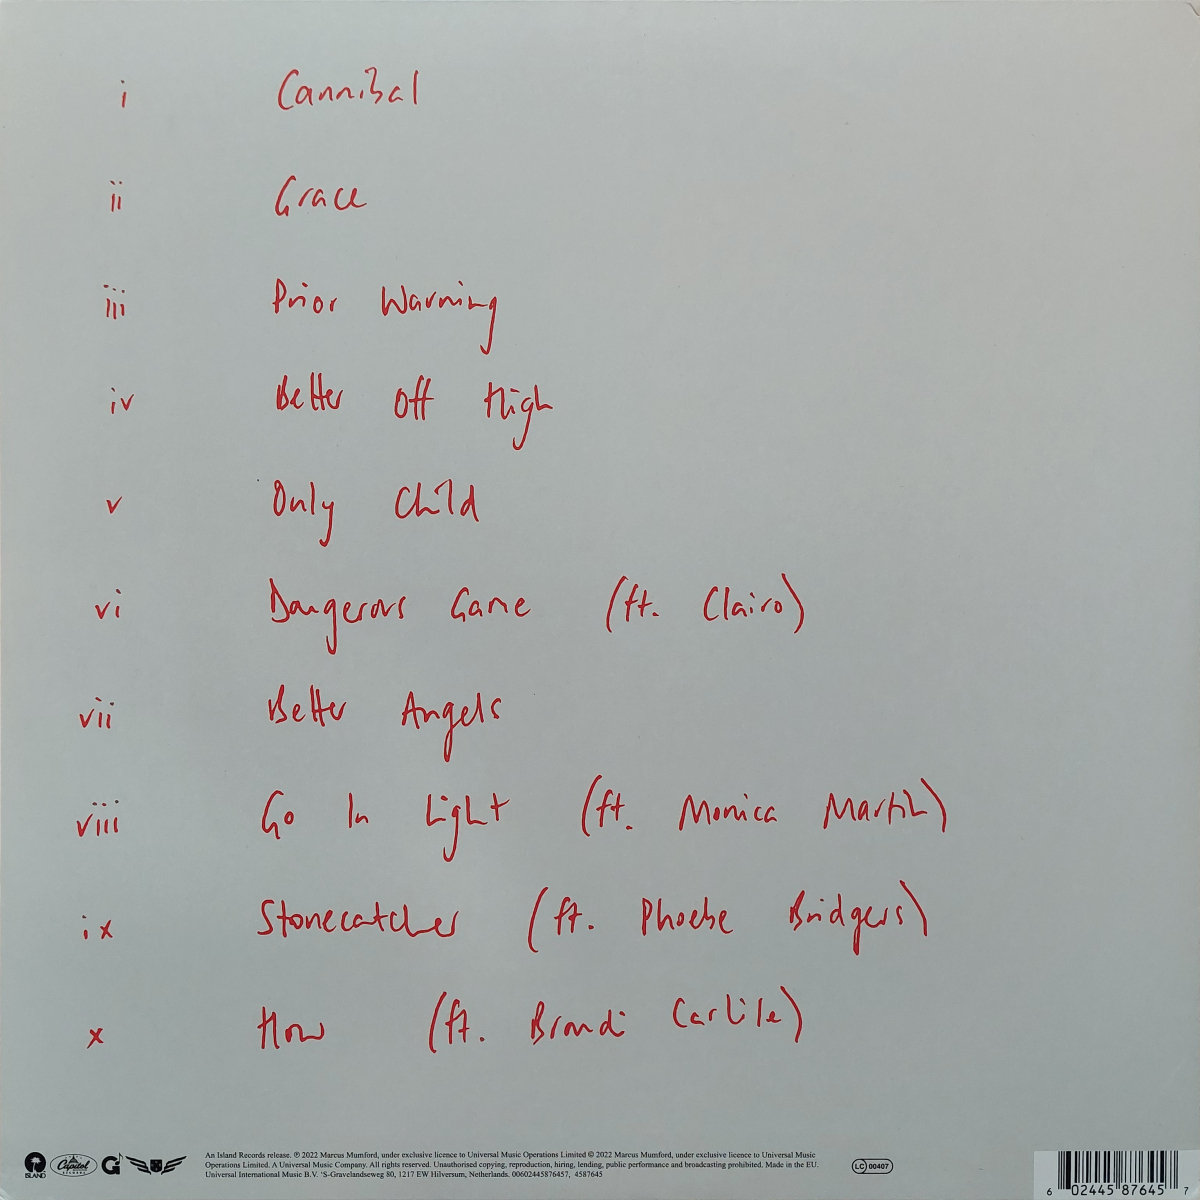 i Cannibal
ii Grace
iii Prior Warning
iv Better Off High
v Only Child
vi Dangerous Game (ft. Clairo)
vii Better Angels
viii Go In Light (ft. Monica Martin)
ix Stonecatcher (ft. Phoebe Bridgers)
x How (ft. Brandi Carlile)
ISLAND Capitol RECORDS An Island Records release. ℗ 2022 Marcus Mumford, under exclusive licence to Universal Music Operations Limited © 2022 Marcus Mumford, under exclusive licence to Universal Music
Operations Limited. A Universal Music Company. All rights reserved. Unauthorised copying, reproduction, hiring, lending, public performance and broadcasting prohibited. Made in the EU.
Universal International Music B.V. 'S-Gravelandseweg 80, 1217 EW Hilversum, Netherlands. 00602445876457, 4587645
LC 00407
6 02445 87645 7